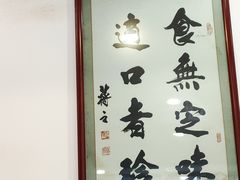 食無定味
適口者珍
蔣立